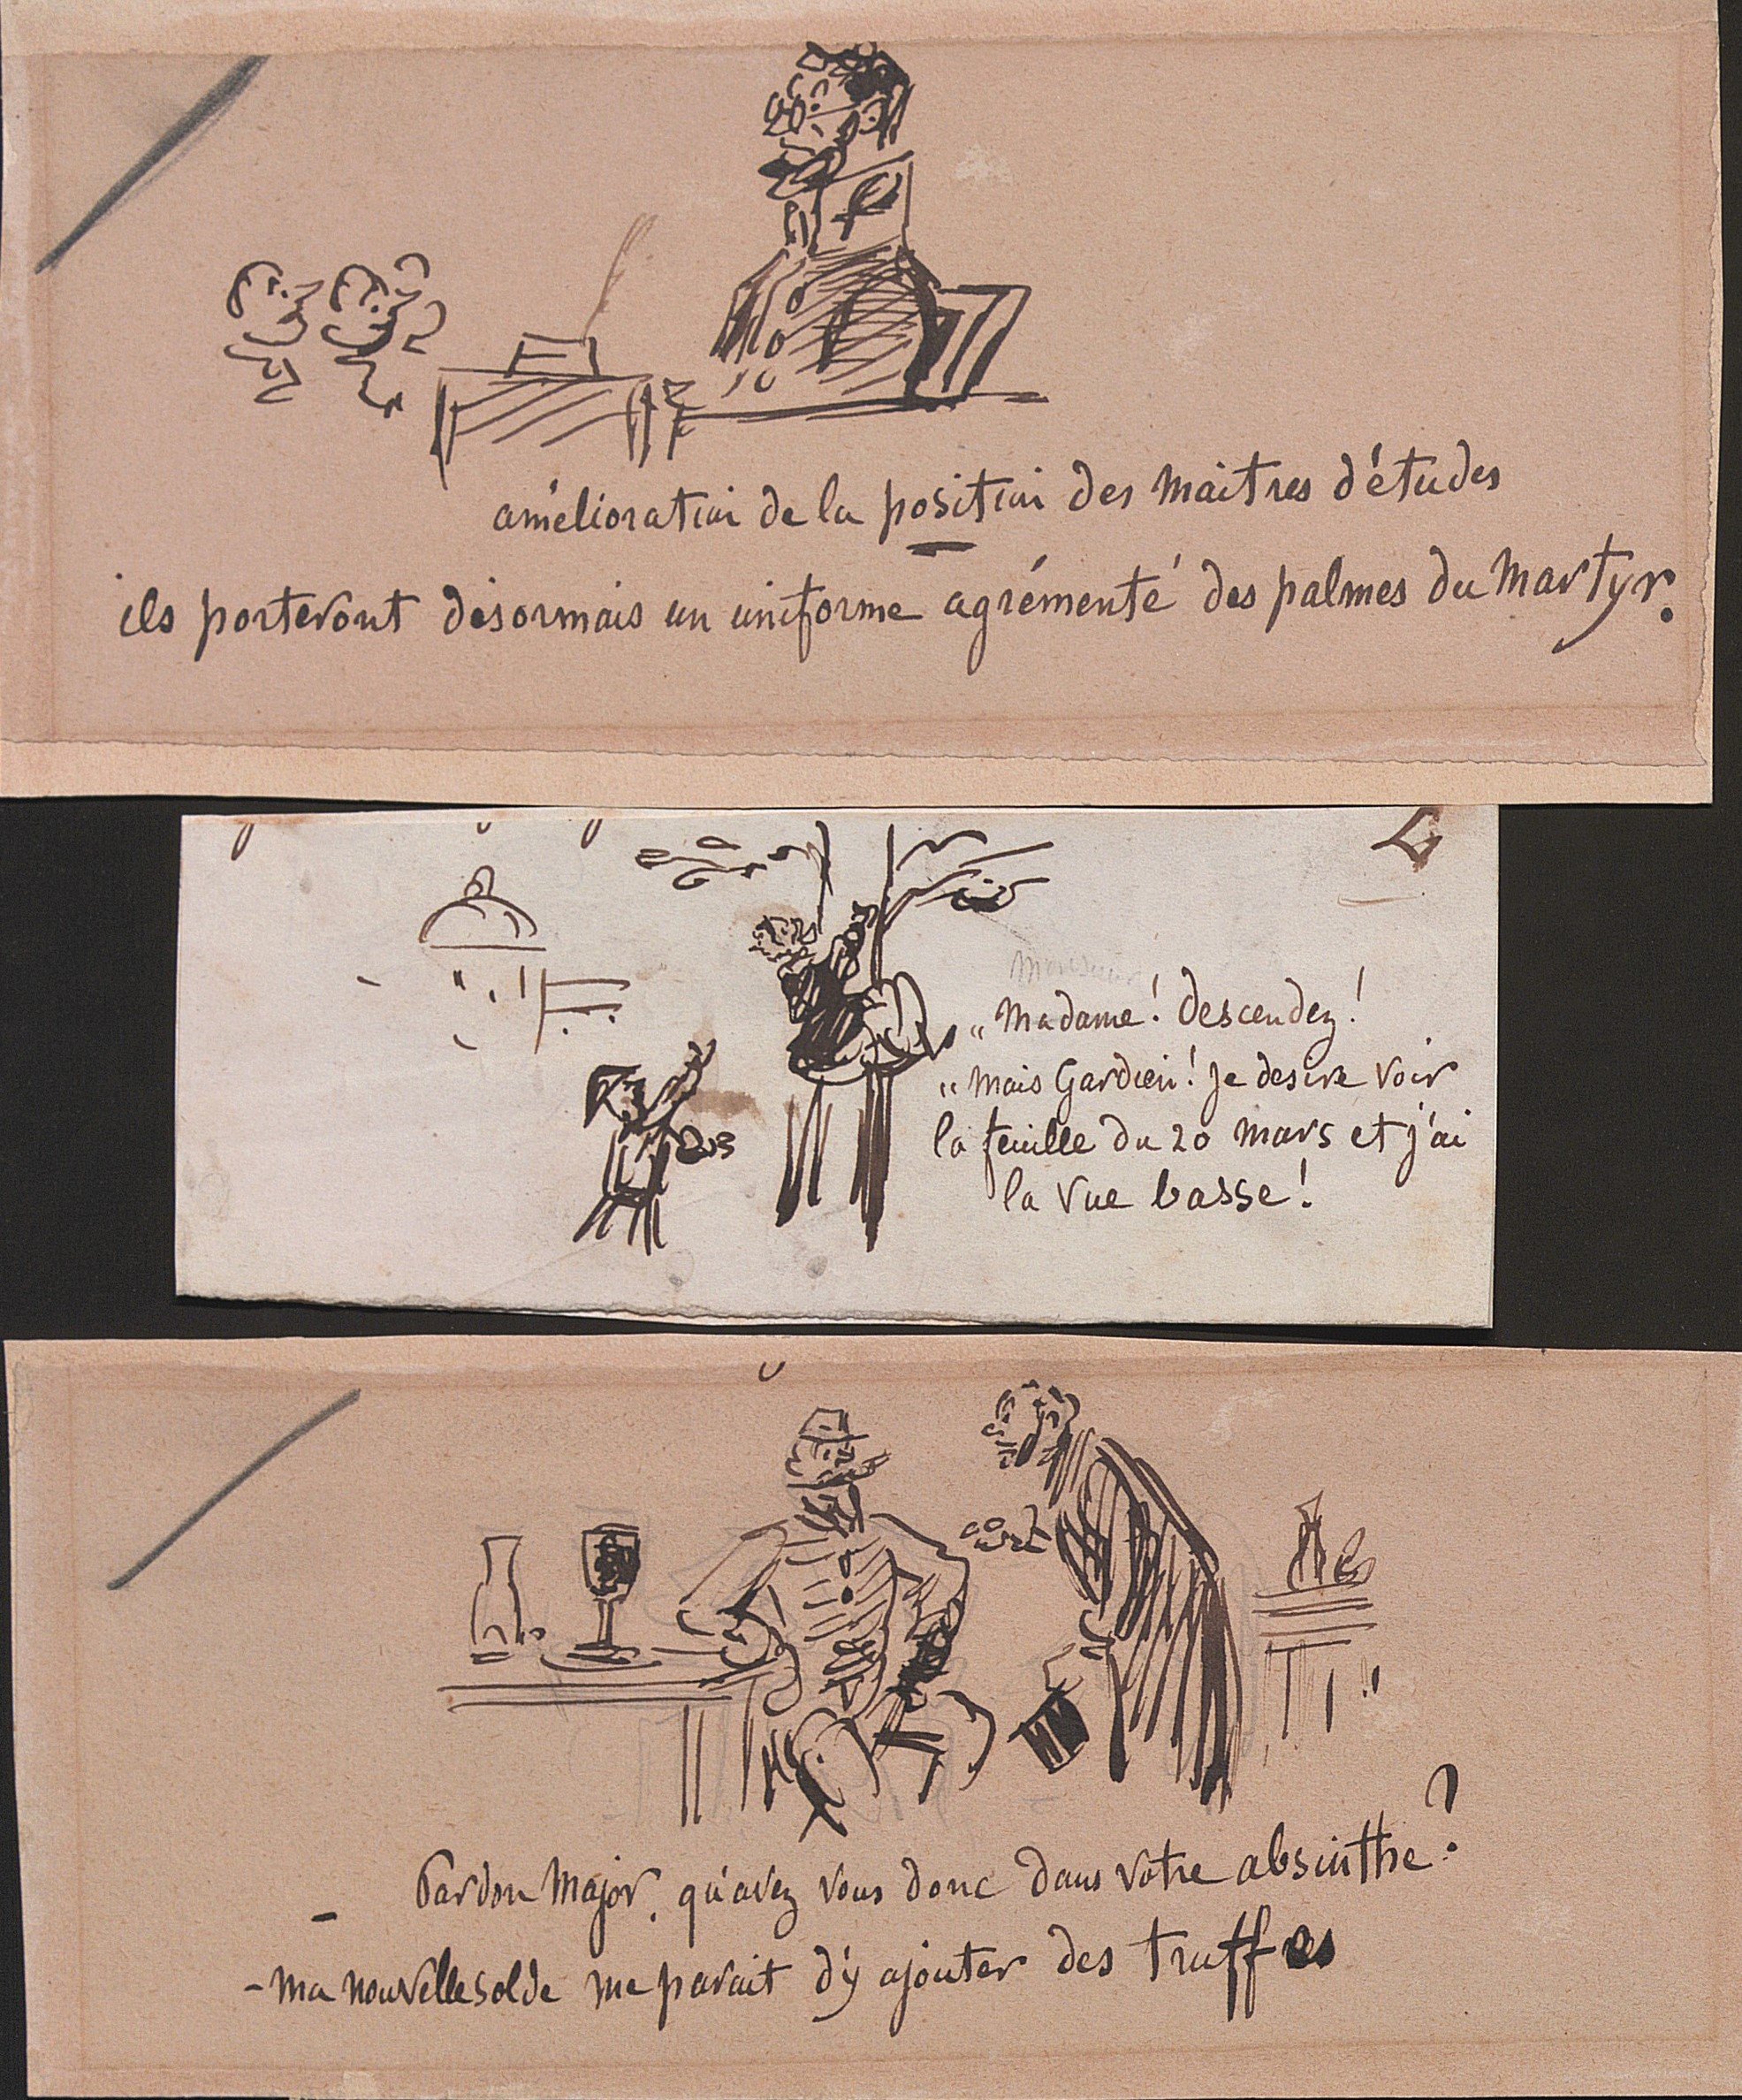 amélioration de la position des maitres d'études
ils porteront désormais un uniforme agrémenté des palmes du martyr.
"Madame! descendez!
"mais Gardien! je desire voir
la feuille du 20 mars et j'ai
la vue basse!
- Pardon Major, qu'avez vous donc dans votre absinthe?
- ma nouvelle solde me parait d'y ajouter des truffes